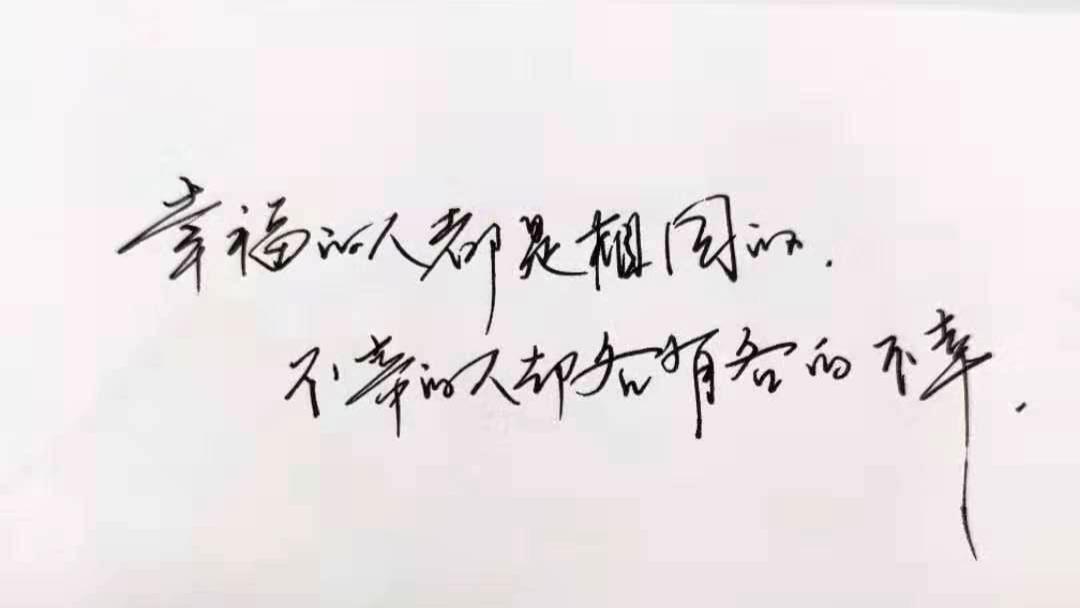 幸福的人都是相同的.
不幸的人却各有各的不幸.